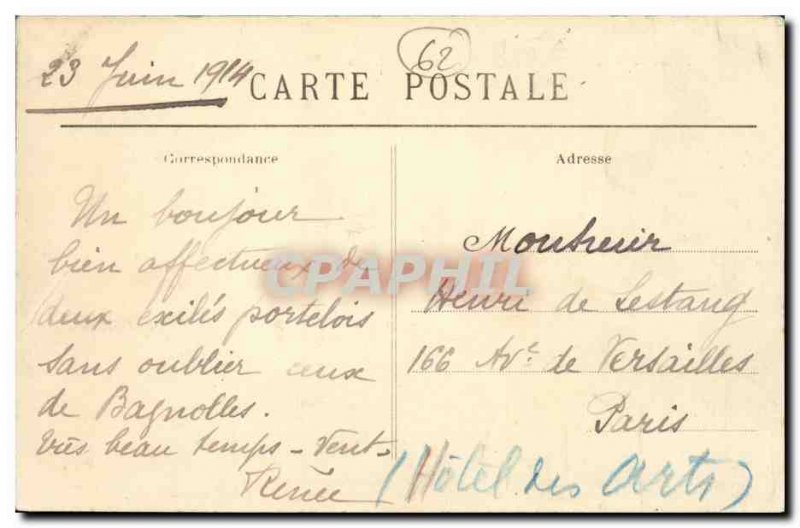 23 Juin 1914
62
CARTE POSTALE
Correspondance
Adresse
Un bonjour
bien affectueux de
deux exilés portelois
sans oublier ceux
de Bagnolles.
très beau temps - Vent -
Renée
Monsieur
Henri de Lestang
166 Ave de Versailles
Paris
(Hôtel des Arts)
CPAPHIL